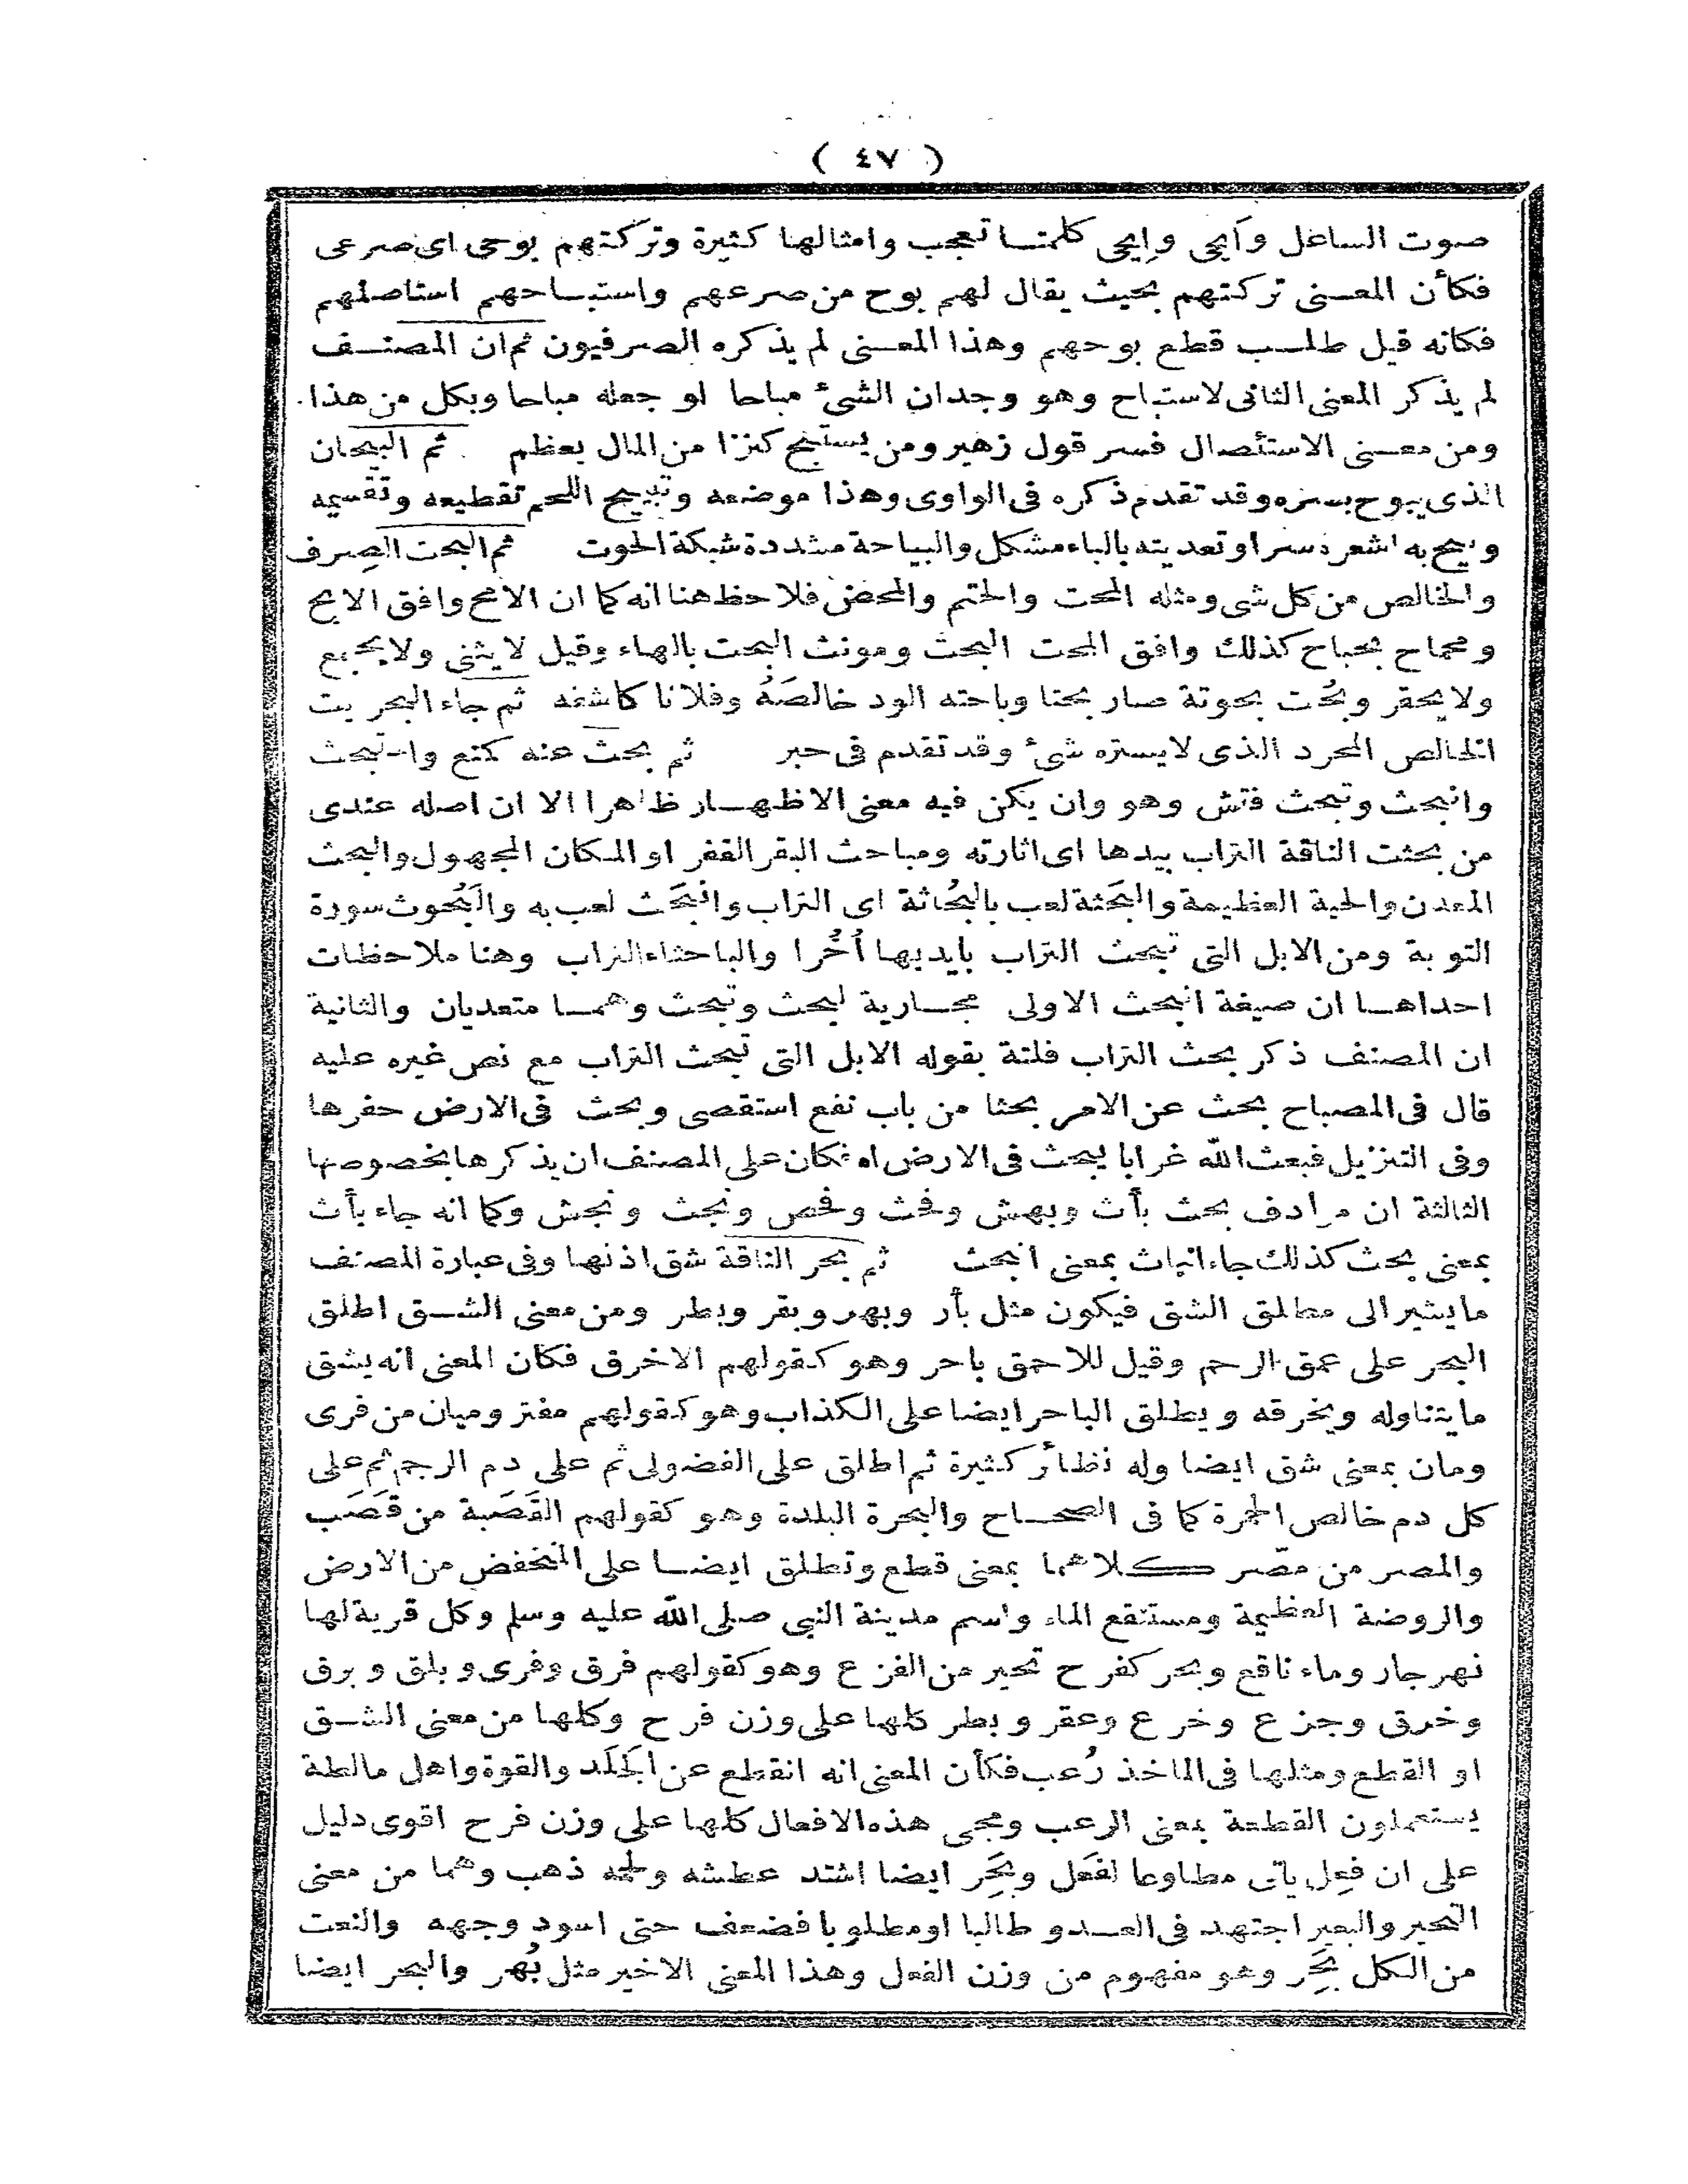 ( ٤٧ )
صوت الساعل وآيحى وإيحى كلمتا تعجب وامثالها كثيرة وتركتهم بوحى اى صرعى
فكأن المعنى تركتهم بحيث يقال لهم بوح من صرعهم واستباحهم استاصلهم
فكانه قيل طلب قطع بوحهم وهذا المعنى لم يذكره الصرفيون ثم ان المصنف
لم يذكر المعنى الثانى لاستباح وهو وجدان الشئ مباحا او جعله مباحا وبكل من هذا
ومن معنى الاستئصال فسر قول زهير ومن يستبح كنزا من المال يعظم ثم البيحان
الذى يبوح بسره وقد تقدم ذكره فى الواوى وهذا موضعه وتبيح اللحم تقطيعه وتقسيمه
وبيح به اشعره سرا وتعديته بالباء مشكل والبياحة مشددة شبكة الحوت ثم البحت الصِرف
والخالص من كل شى ومثله المحت والحتم والمحض فلاحظ هنا انه كما ان الامح وافق الابح
ومحماح بحباح كذلك وافق المحت البحث ومونث البحت بالهاء وقيل لا يثنى ولا يجمع
ولا يحقر وبحُت بحوتة صار بحتا وباحته الود خالصَهُ وفلانا كاشفه ثم جاء البحريت
الخالص المجرد الذى لا يستره شئ وقد تقدم فى حبر ثم بحث عنه كمنع واستبحث
وانبحث وتبحث فتش وهو وان يكن فيه معنى الاظهار ظاهرا الا ان اصله عندى
من بحثت الناقة التراب بيدها اى اثارته ومباحث البقر القفر او المكان المجهول والبحث
المعدن والحية العظيمة والبَحَثة لعب بالبُحاثة اى التراب وانبحَث لعب به والبَحوث سورة
التوبة ومن الابل التى تبحث التراب بايديها اُخُرا والباحثاء التراب وهنا ملاحظات
احداها ان صيغة انبحث الاولى مجارية لبحث وتبحث وهما متعديان والثانية
ان المصنف ذكر بحث التراب فلتة بقوله الابل التى تبحث التراب مع نص غيره عليه
قال فى المصباح بحث عن الامر بحثا من باب نفع استقصى وبحث فى الارض حفرها
وفى التنزيل فبعث الله غرابا يبحث فى الارض اه فكان على المصنف ان يذكرها بخصوصها
الثالثة ان مرادف بحث بأث وبهش وفحث وفحص ونجث ونجش وكما انه جاء بأث
بمعنى بحث كذلك جاء انباث بمعنى انبحث ثم بحر الناقة شق اذنها وفى عبارة المصنف
ما يشير الى مطلق الشق فيكون مثل بأر وبهر وبقر وبطر ومن معنى الشق اطلق
البحر على عمق الرحم وقيل للاحمق باحر وهو كقولهم الاخرق فكان المعنى انه يشق
ما يتناوله ويخرقه ويطلق الباحر ايضا على الكذاب وهو كقولهم مفتر وميان من فرى
ومان بمعنى شق ايضا وله نظائر كثيرة ثم اطلق على الفضولى ثم على دم الرحم ثم على
كل دم خالص الحمرة كما فى الصحاح والبحرة البلدة وهو كقولهم القَصَبة من قَصَب
والمصر من مصّر كلاهما بمعنى قطع وتطلق ايضا على المنخفض من الارض
والروضة العظيمة ومستنقع الماء واسم مدينة النبى صلى الله عليه وسلم وكل قرية لها
نهر جار وماء ناقع وبحر كفرح تحير من الفزع وهو كقولهم فرق وفرى وبلق وبرق
وخرق وجزع وخرع وعقر وبطر كلها على وزن فرح وكلها من معنى الشق
او القطع ومثلها فى الماخذ رُعب فكأن المعنى انه انقطع عن الجَلَد والقوة واهل مالطة
يستعملون القطعة بمعنى الرعب ومجى هذه الافعال كلها على وزن فرح اقوى دليل
على ان فعِل ياتى مطاوعا لفعَل وبحِر ايضا اشتد عطشه ولحمه ذهب وهما من معنى
التحير والبعير اجتهد فى العدو طالبا او مطلوبا فضعف حتى اسود وجهه والنعت
من الكل بحِر وهو مفهوم من وزن الفعل وهذا المعنى الاخير مثل بُهر والبحر ايضا